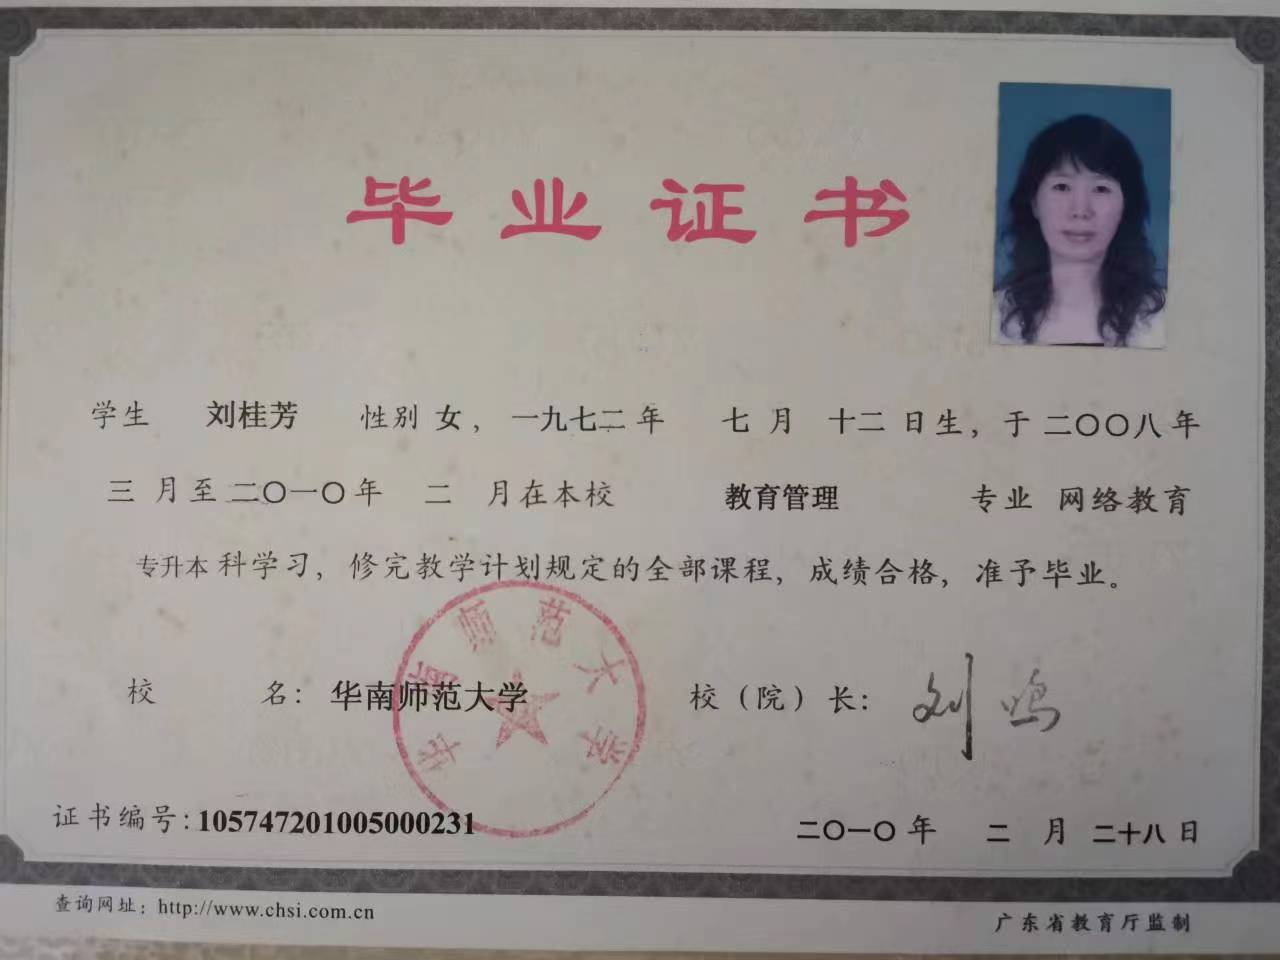 毕业证书
学生 刘桂芳 性别 女，一九七二年 七 月 十二 日生，于 二〇〇八年
三 月至 二〇一〇年 二 月在本校 教育管理 专业 网络教育
专升本 科学习，修完教学计划规定的全部课程，成绩合格，准予毕业。
校 名：华南师范大学 校（院）长：刘鸣
华南师范大学
证书编号：105747201005000231 二〇一〇年 二 月 二十八日
查询网址：http://www.chsi.com.cn 广东省教育厅监制